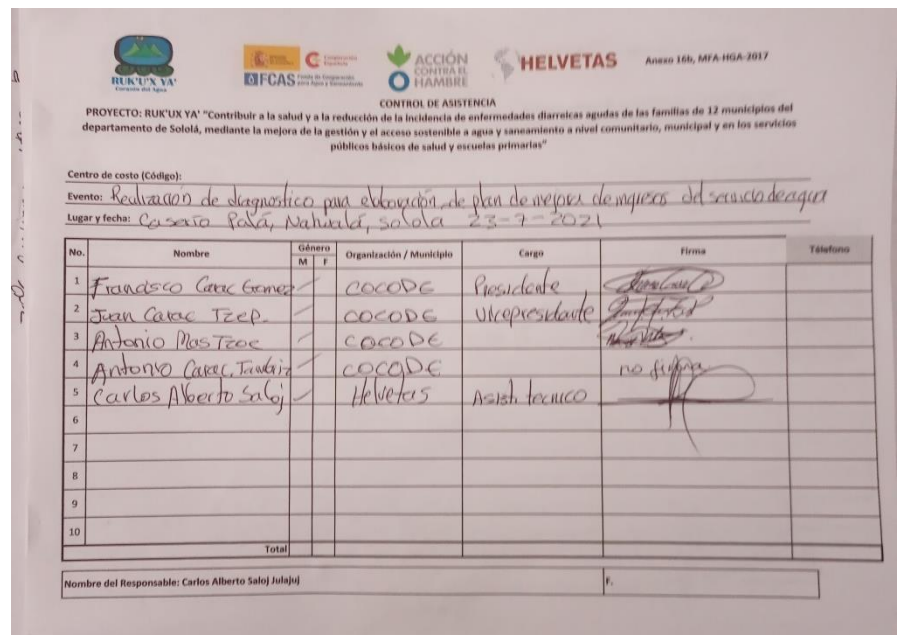 RUK'UX YA'
Corazón del Agua
Cooperación Española
FCAS Fondo de Cooperación para Agua y Saneamiento
ACCIÓN CONTRA EL HAMBRE
HELVETAS
Anexo 16b, MFA-HGA-2017
CONTROL DE ASISTENCIA
PROYECTO: RUK'UX YA' "Contribuir a la salud y a la reducción de la incidencia de enfermedades diarreicas agudas de las familias de 12 municipios del
departamento de Sololá, mediante la mejora de la gestión y el acceso sostenible a agua y saneamiento a nivel comunitario, municipal y en los servicios
públicos básicos de salud y escuelas primarias"
Centro de costo (Código):
Evento: Realización de diagnostico para elaboración de plan de mejora de ingresos del servicio de agua
Lugar y fecha: Caserio Palá, Nahualá, sololá 23-7-2021
No. Nombre Género M F Organización / Municipio Cargo Firma Télefono
1 Francisco Carac Gomez COCODE Presidente
2 Juan Carac Tzep. COCODE Vicepresidante
3 Antonio Mas Tzoc COCODE
4 Antonio Carac COCODE no firma
5 Carlos Alberto Saloj Helvetas Asist tecnico
6
7
8
9
10
Total
Nombre del Responsable: Carlos Alberto Saloj Julajuj F.